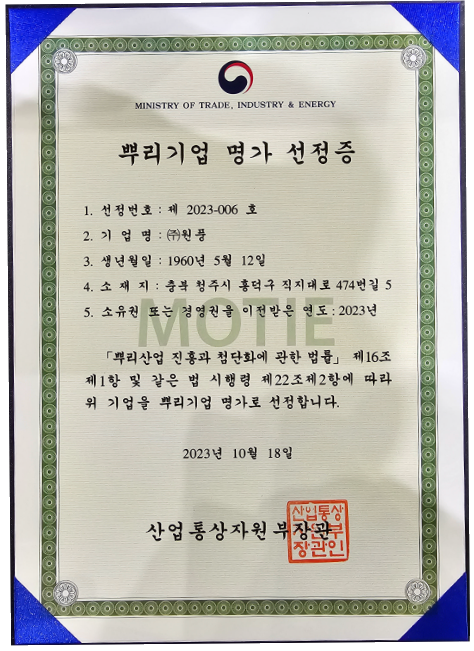 MINISTRY OF TRADE, INDUSTRY & ENERGY
뿌리기업 명가 선정증
1. 선정번호 : 제 2023-006 호
2. 기 업 명 : ㈜원풍
3. 생년월일 : 1960년 5월 12일
4. 소 재 지 : 충북 청주시 흥덕구 직지대로 474번길 5
5. 소유권 또는 경영권을 이전받은 연도 : 2023년
MOTIE
「뿌리산업 진흥과 첨단화에 관한 법률」 제16조
제1항 및 같은 법 시행령 제22조제2항에 따라
위 기업을 뿌리기업 명가로 선정합니다.
2023년 10월 18일
산업통상자원부장관
산업통상
부
장관인